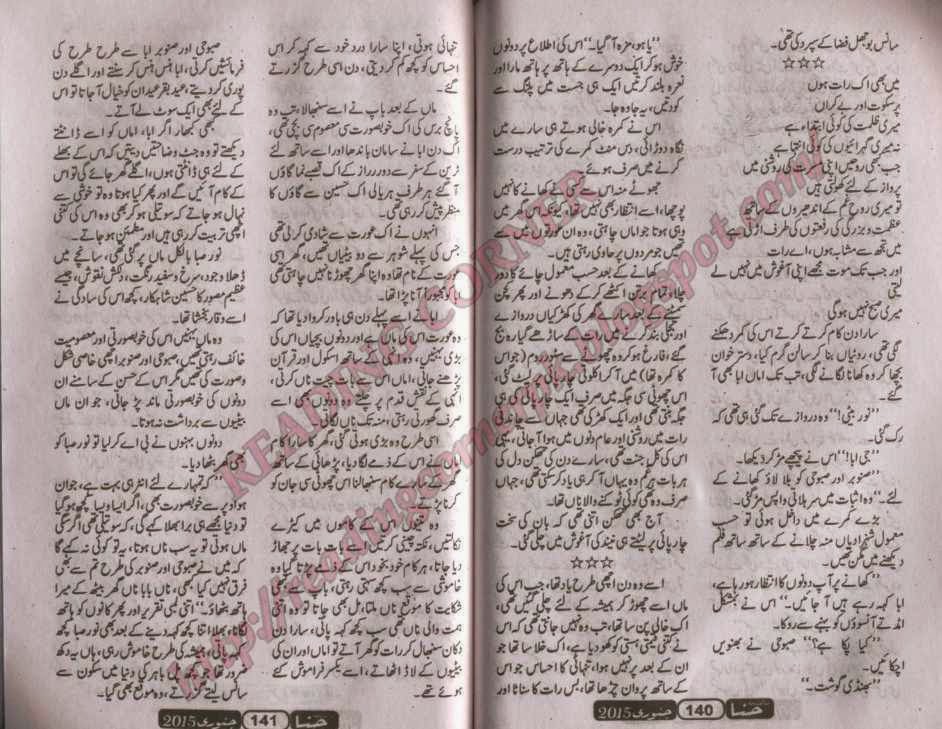 سانس بوجھل فضا کے سپرد کی تھی۔
☆☆☆
میں بھی اک رات ہوں
پر سکوت اور بے کراں
میری ظلمت کی کوئی ابتداء ہے
نہ میری گہرائیوں کی کوئی انتہا ہے
جب بھی روحیں اپنی مسرت کی روشنی میں
پرواز کے لئے کھولتی ہیں
تو میری روح غم کے اندھیروں کے ساتھ
عظمت و بزرگی کی رفعتوں کی طرف اڑتی ہے
میں تجھ سے مشابہ ہوں، اے رات
اور جب تک موت مجھے اپنی آغوش میں نہیں لے
لیتی
میری صبح نہیں ہوگی
سارا دن کام کرتے کرتے اس کی کمر دکھنے
لگی تھی، روٹیاں بنا کر سالن گرم کیا، دستر خوان
بچھا کر وہ کھانا لگانے لگی، تب تک اماں ابا بھی آ
گئے۔
”نور بیٹی!“ وہ دروازے تک گئی ہی تھی کہ
رک گئی۔
”جی ابا!“ اس نے پیچھے مڑ کر دیکھا۔
”صنوبر اور صبوحی کو بلا لاؤ کھانے کے
لئے۔“ وہ اثبات میں سر ہلاتی واپس مڑ گئی۔
بڑے کمرے میں داخل ہوئی تو حسب
معمول شہزادیاں منہ چلانے کے ساتھ ساتھ فلم
دیکھنے میں مگن تھیں۔
”کھانے پر آپ دونوں کا انتظار ہو رہا ہے،
ابا کہہ رہے ہیں آ جائیں۔“ اس نے بمشکل
امڈتے آنسوؤں کو بہنے سے روکا۔
”کیا پکا ہے؟“ صبوحی نے بھنویں
اچکائیں۔
”بھنڈی گوشت۔“
”یاہو، مزہ آ گیا۔“ اس کی اطلاع پر دونوں
خوش ہو کر ایک دوسرے کے ہاتھ پر ہاتھ مارا اور
نعرہ بلند کرتیں ایک ہی جست میں پلنگ سے
کودتیں، یہ جا وہ جا۔
اس نے کمرہ خالی ہوتے ہی سارے میں
نگاہ دوڑائی، دس منٹ کمرے کی ترتیب درست
کرنے میں صرف ہوئے۔
جھوٹے منہ اس سے کسی نے کھانے کا نہیں
پوچھا، اسے انتظار بھی نہیں تھا، کیونکہ اس گھر میں
وہی ہوتا جو اماں چاہتی، وہ ان عورتوں میں سے
تھیں جو مردوں پر حاوی رہتی ہیں۔
کھانے کے بعد حسب معمول چائے کا دور
چلا، تمام برتن اکٹھے کر کے دھونے اور پھر کچن
سمیٹنے کے بعد سارے گھر کی کھڑکیاں دروازے
اور بجلی بند کرتے کرتے رات کے ساڑھے گیارہ بج
گئے، فارغ ہو کر وہ چھوٹے سے سٹور روم (جو اس
کا کمرہ تھا) میں آ کر اکلوتی چارپائی پر لیٹ گئی،
اس چھوٹی سی جگہ میں صرف ایک چارپائی کی ہی
جگہ بنتی تھی اور ایک کھڑکی تھی جہاں سے چاندنی
رات میں روشنی اور عام دنوں میں ہوا آ جاتی، یہی
اس کی کل جنت تھی، سارے دن کی تھکن دل کی
ہر بات ہر غم وہ یہاں آ کر ہی یاد کر سکتی تھی، جہاں
صرف وہ تھی کوئی ٹوکنے والا ناں تھا۔
آج بھی تھکن اتنی تھی کہ بان کی سخت
چارپائی پر لیٹتے ہی نیند کی آغوش میں چلی گئی۔
☆☆☆
اسے وہ دن اچھی طرح یاد تھا، جب اس کی
ماں اسے چھوڑ کر ہمیشہ کے لئے چلی گئیں تھی،
اک خالی پن سا تھا، تب وہ نہیں جانتی تھی کہ اس
نے کتنی قیمتی ہستی کو کھو دیا ہے، اک خلا سا تھا جو
ان کے بعد پر نہیں ہوا، تنہائی کا احساس جو اس
کے ساتھ پروان چڑھا تھا، بس رات کا سناٹا اور
حنا 140 جنوری 2015
تنہائی ہوتی، اپنا سارا درد خود سے کہہ کر اس
احساس کو کچھ کم کر دیتی، دن اسی طرح گزرتے
گئے۔
ماں کے بعد باپ نے اسے سنبھالا، تب وہ
پانچ برس کی اک خوبصورت سی معصوم سی بچی تھی،
اک دن ابا نے سامان باندھا اور اسے ساتھ لئے
ٹرین کے سفر سے دور دراز کے اک قصبے نما گاؤں
آ گئے ہر طرف ہریالی اک حسین سے گاؤں کا
منظر پیش کر رہی تھی۔
انہوں نے اک عورت سے شادی کر لی تھی
جس کی پہلے شوہر سے دو بیٹیاں تھیں، گھر اسی
عورت کے نام تھا وہ اپنا گھر چھوڑنا نہیں چاہتی تھی
ابا کو مجبوراً آنا پڑا تھا۔
ابا نے اسے پہلے دن ہی باور کروا دیا تھا کہ
وہ عورت اس کی ماں ہے اور دونوں بچیاں اس کی
بڑی بہنیں، وہ ان کے ساتھ اسکول اور قرآن
پڑھنے جاتی، اماں اس سے بات چیت ناں کرتی،
انہی کے نقش قدم پر چلتے وہ دونوں بھی اسے
صرف گھورتی رہتی، منہ تک ناں لگاتی۔
اسی طرح وہ بڑی ہوتی گئی، گھر کا سارا کام
ماں نے اس کے ذمے لگا دیا، پڑھائی کے ساتھ
گھر کے سارے کام سنبھالنا اس چھوٹی سی جان کو
کرنا پڑے۔
وہ تینوں اس کے کاموں میں کیڑے
نکالتیں، نکتہ چینی کرتیں اسے بات بات پر جھاڑ
دیا جاتا، ہر کام خود بخود اس کے ذمے پڑتا گیا وہ
خاموشی سے سب کچھ سہتی رہتی، باپ سے بھی
شکایت کا موقع ناں ملتا، مل بھی جاتا تو وہ اتنی
ہمت والی ناں تھی سب کچھ کہہ پاتی، سارا دن
دکان سنبھال کر رات کو گھر آتے تو اماں اور ان کی
بیٹیوں کے لاڈ اٹھاتے، اسے یکسر فراموش کئے
ہوئے تھے۔
صبوحی اور صنوبر ابا سے طرح طرح کی
فرمائشیں کرتی، ابا ہنس ہنس کر سنتے اور اگلے دن
پوری کر دیتے، عید بقر عید ان کو خیال آ جاتا تو اس
کے لئے بھی ایک سوٹ لے آتے۔
کبھی کبھار اگر ابا، اماں کو اسے ڈانٹتے
دیکھتے تو وہ جھٹ وضاحتیں دیتیں کہ اس کے بھلے
کے لئے ہی ڈانٹتی ہوں، اگلے گھر جائے گی تو اس
کے کام آئیں گے اور پھر کیا ہوتا وہ تو خوشی سے
نہال ہو جاتے کہ سوتیلی ہو کر بھی وہ اس کی کتنی
اچھی تربیت کر رہی ہیں اور مطمئن ہو جاتے۔
نور صبا بالکل ماں پر گئی تھی، سانچے میں
ڈھلا وجود، سرخ و سفید رنگت، دلکش نقوش، جیسے
عظیم مصور کا حسین شاہکار، کچھ اس کی سادگی نے
اسے وقار بخشا تھا۔
وہ ماں بہنیں اس کی خوبصورتی اور معصومیت
خائف رہتی تھیں، صبوحی اور صنوبر اچھی خاصی شکل
و صورت کی تھیں مگر اس کے حسن کے سامنے ان
دونوں کی خوبصورتی ماند پڑ جاتی، جو ان ماں
بیٹیوں سے برداشت نہ ہوتا۔
دونوں بہنوں نے بی اے کر لیا تو نور صبا کو
بھی گھر بٹھا دیا۔
”کہ تمہارے لئے انٹر ہی بہت ہے، جوان
ہو اوپر سے خوبصورت بھی، اگر ایسا ویسا کچھ ہو گیا
تو دنیا مجھے ہی برا بھلا کہے گی، کہ سوتیلی تھی اگر سگی
ماں ہوتی تو یہ سب ناں ہوتا، یہ تو کوئی نہ کہے گا
کہ میں نے صبوحی اور صنوبر کی طرح تم سے بھی
فرق نہیں کیا کبھی، ناں بابا ناں گھر بیٹھ کے میرا
ہاتھ بٹھاؤ۔“ اتنی لمبی تقریر اور پھر کانوں کو ہاتھ
لگانا، بھلا اتنا کچھ کہہ دینے کے بعد بھی نور صبا کچھ
کہہ پاتی، ہمیشہ کی طرح خاموش رہی، ہاں یہ دکھ
ضرور تھا کہ جو کچھ پل باہر کی دنیا میں سکون سے
سانس لیتے گزرتے، وہ موقع بھی گیا۔
حنا 141 جنوری 2015
READING CORNER
http://readingcornerpk.blogspot.com